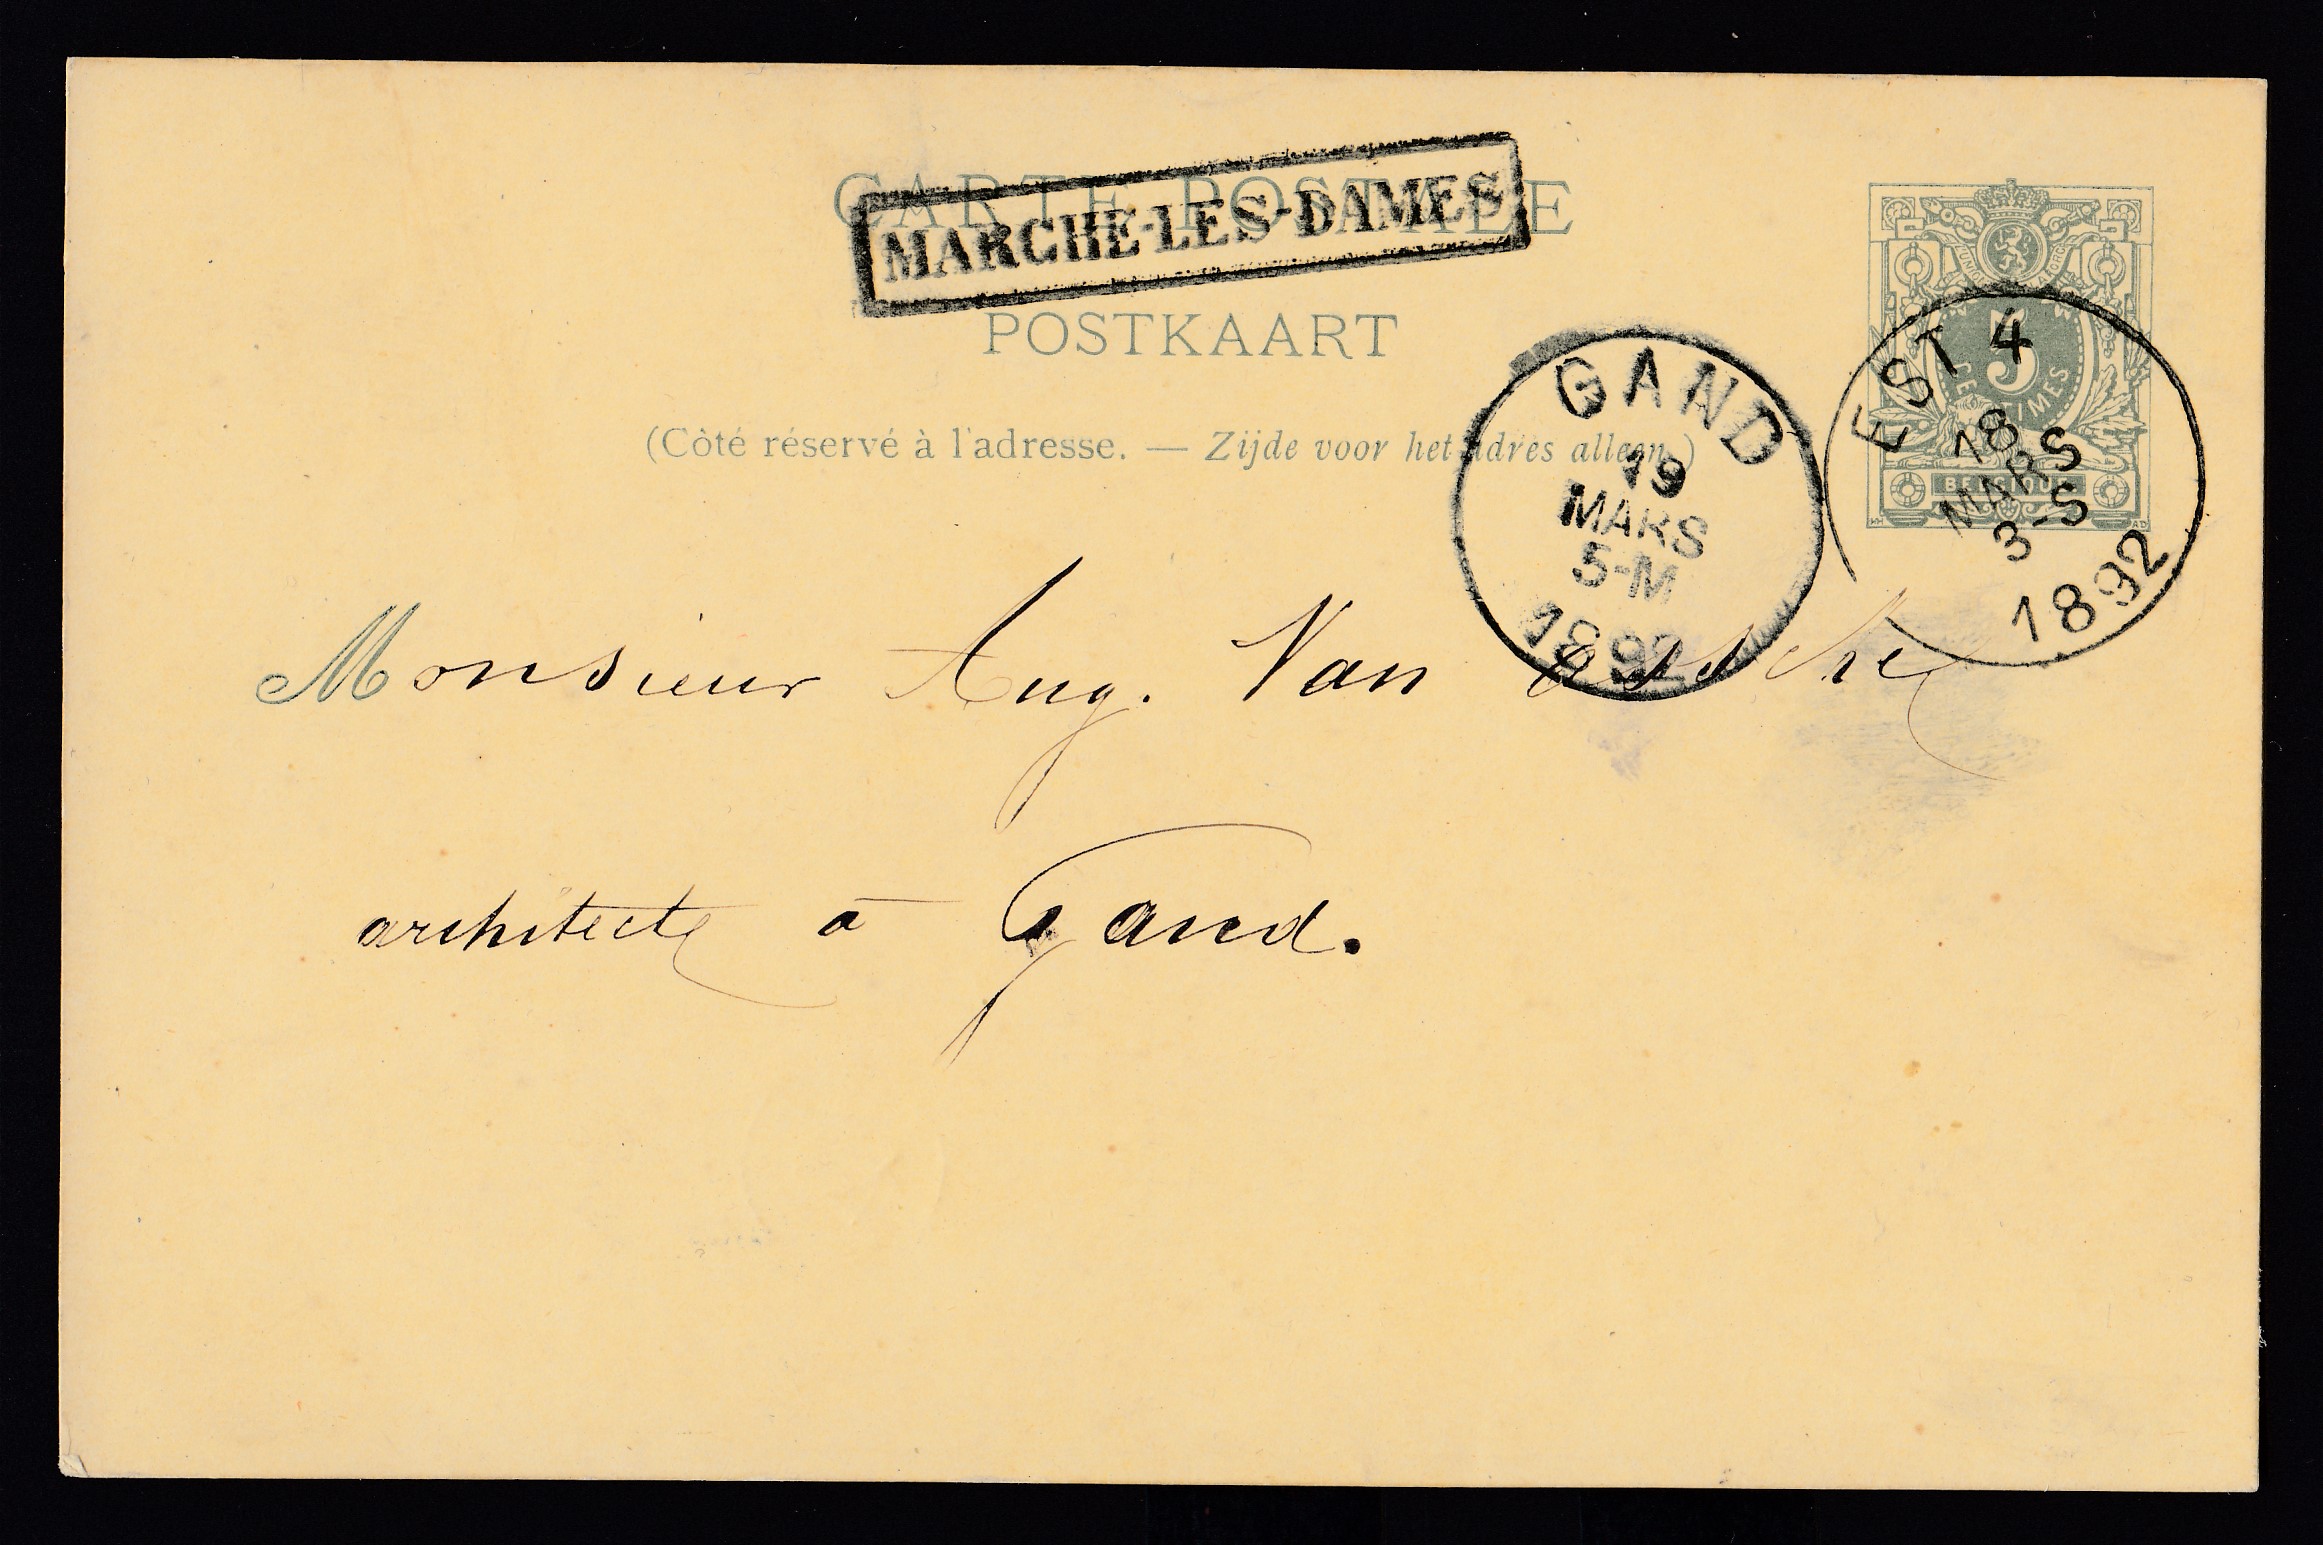 CARTE POSTALE
MARCHE-LES-DAMES
POSTKAART
(Côté réservé à l'adresse. — Zijde voor het adres alleen.)
L'UNION FAIT LA FORCE
5
CENTIMES
BELGIQUE
EST 4
18
MARS
3-S
1892
GAND
19
MARS
5-M
1892
Monsieur Aug. Van Assche
architecte à Gand.